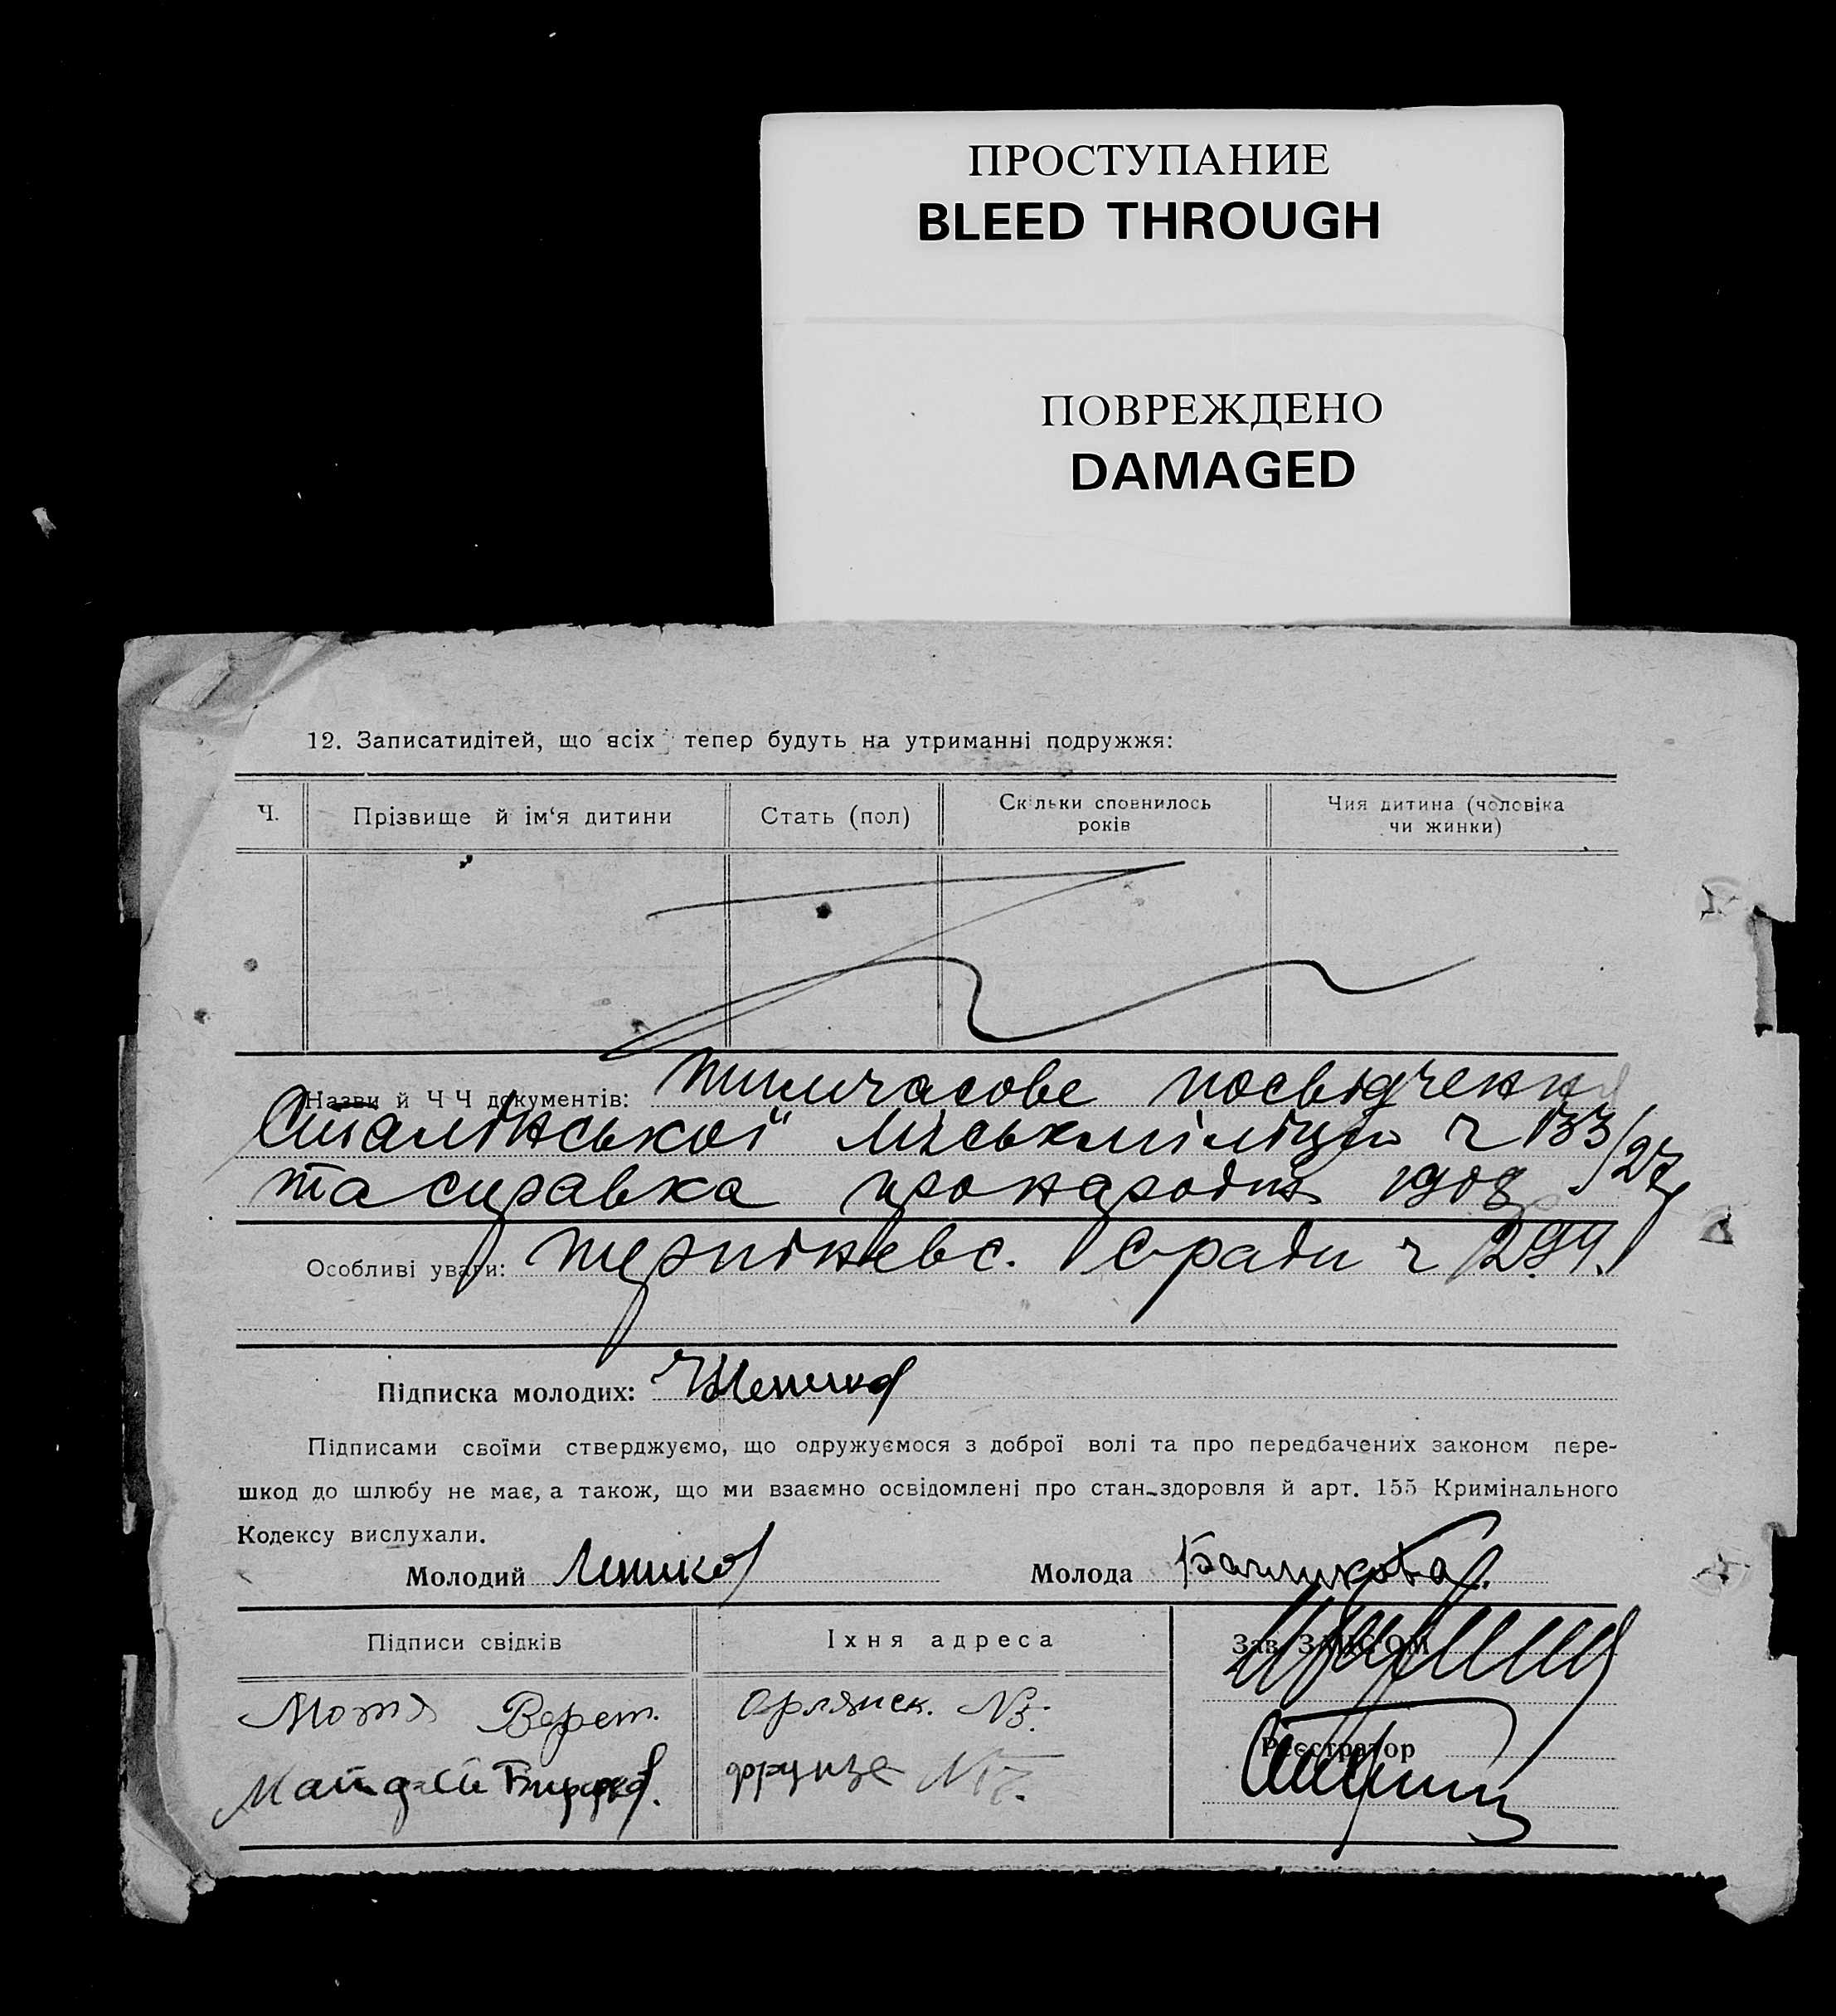 ПРОСТУПАНИЕ
BLEED THROUGH
ПОВРЕЖДЕНО
DAMAGED
12. Записатидітей, що всіх тепер будуть на утриманні подружжя:
Ч.
Прізвище й ім'я дитини
Стать (пол)
Скільки сповнилось
років
Чия дитина (чоловіка
чи жинки)
Назви й Ч Ч документів: тимчасове посвідчення
Сталінської міськміліції ч 133/27
та справка про народж 1908
Особливі уваги: ч 294.
Підписка молодих:
Підписами своїми стверджуємо, що одружуємося з доброї волі та про передбачених законом пере-
шкод до шлюбу не має, а також, що ми взаємно освідомлені про стан здоровля й арт. 155 Кримінального
Кодексу вислухали.
Молодий
Молода
Підписи свідків
Їхня адреса
Зав. ЗАГСОМ
Мотя Верет.
Орлянск. N3.
Майдан
фрунзе N17.
Реєстратор